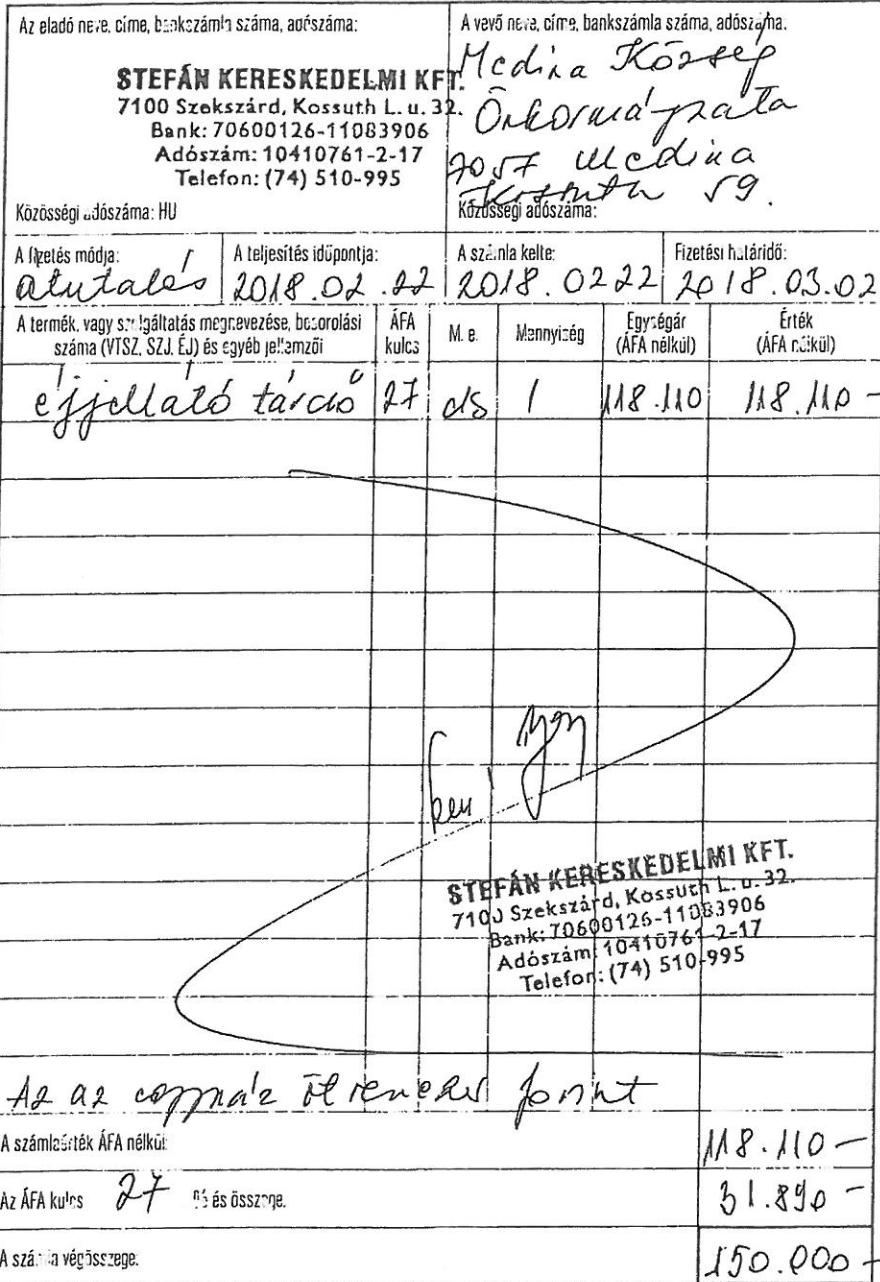 Az eladó neve, címe, bankszámla száma, adószáma:
STEFÁN KERESKEDELMI KFT.
7100 Szekszárd, Kossuth L. u. 32.
Bank: 70600126-11083906
Adószám: 10410761-2-17
Telefon: (74) 510-995
Közösségi adószáma: HU
A vevő neve, címe, bankszámla száma, adószáma:
Medina Község
Önkormányzata
7057 Medina
Kossuth 59.
Közösségi adószáma:
A fizetés módja:
átutalás
A teljesítés időpontja:
2018.02.22
A számla kelte:
2018.02 22
Fizetési határidő:
2018.03.02
A termék, vagy szolgáltatás megnevezése, besorolási
száma (VTSZ, SZJ, ÉJ) és egyéb jellemzői
ÁFA
kulcs
M. e.
Mennyiség
Egységár
(ÁFA nélkül)
Érték
(ÁFA nélkül)
éjjellátó távcső 27 db 1 118.110 118.110 -
STEFÁN KERESKEDELMI KFT.
7100 Szekszárd, Kossuth L. u. 32.
Bank: 70600126-11083906
Adószám: 10410761-2-17
Telefon: (74) 510-995
Az az egyszáz ötvenezer forint
A számlaérték ÁFA nélkül: 118.110 -
Az ÁFA kulcs 27 % és összege. 31.890 -
A számla végösszege: 150.000 -